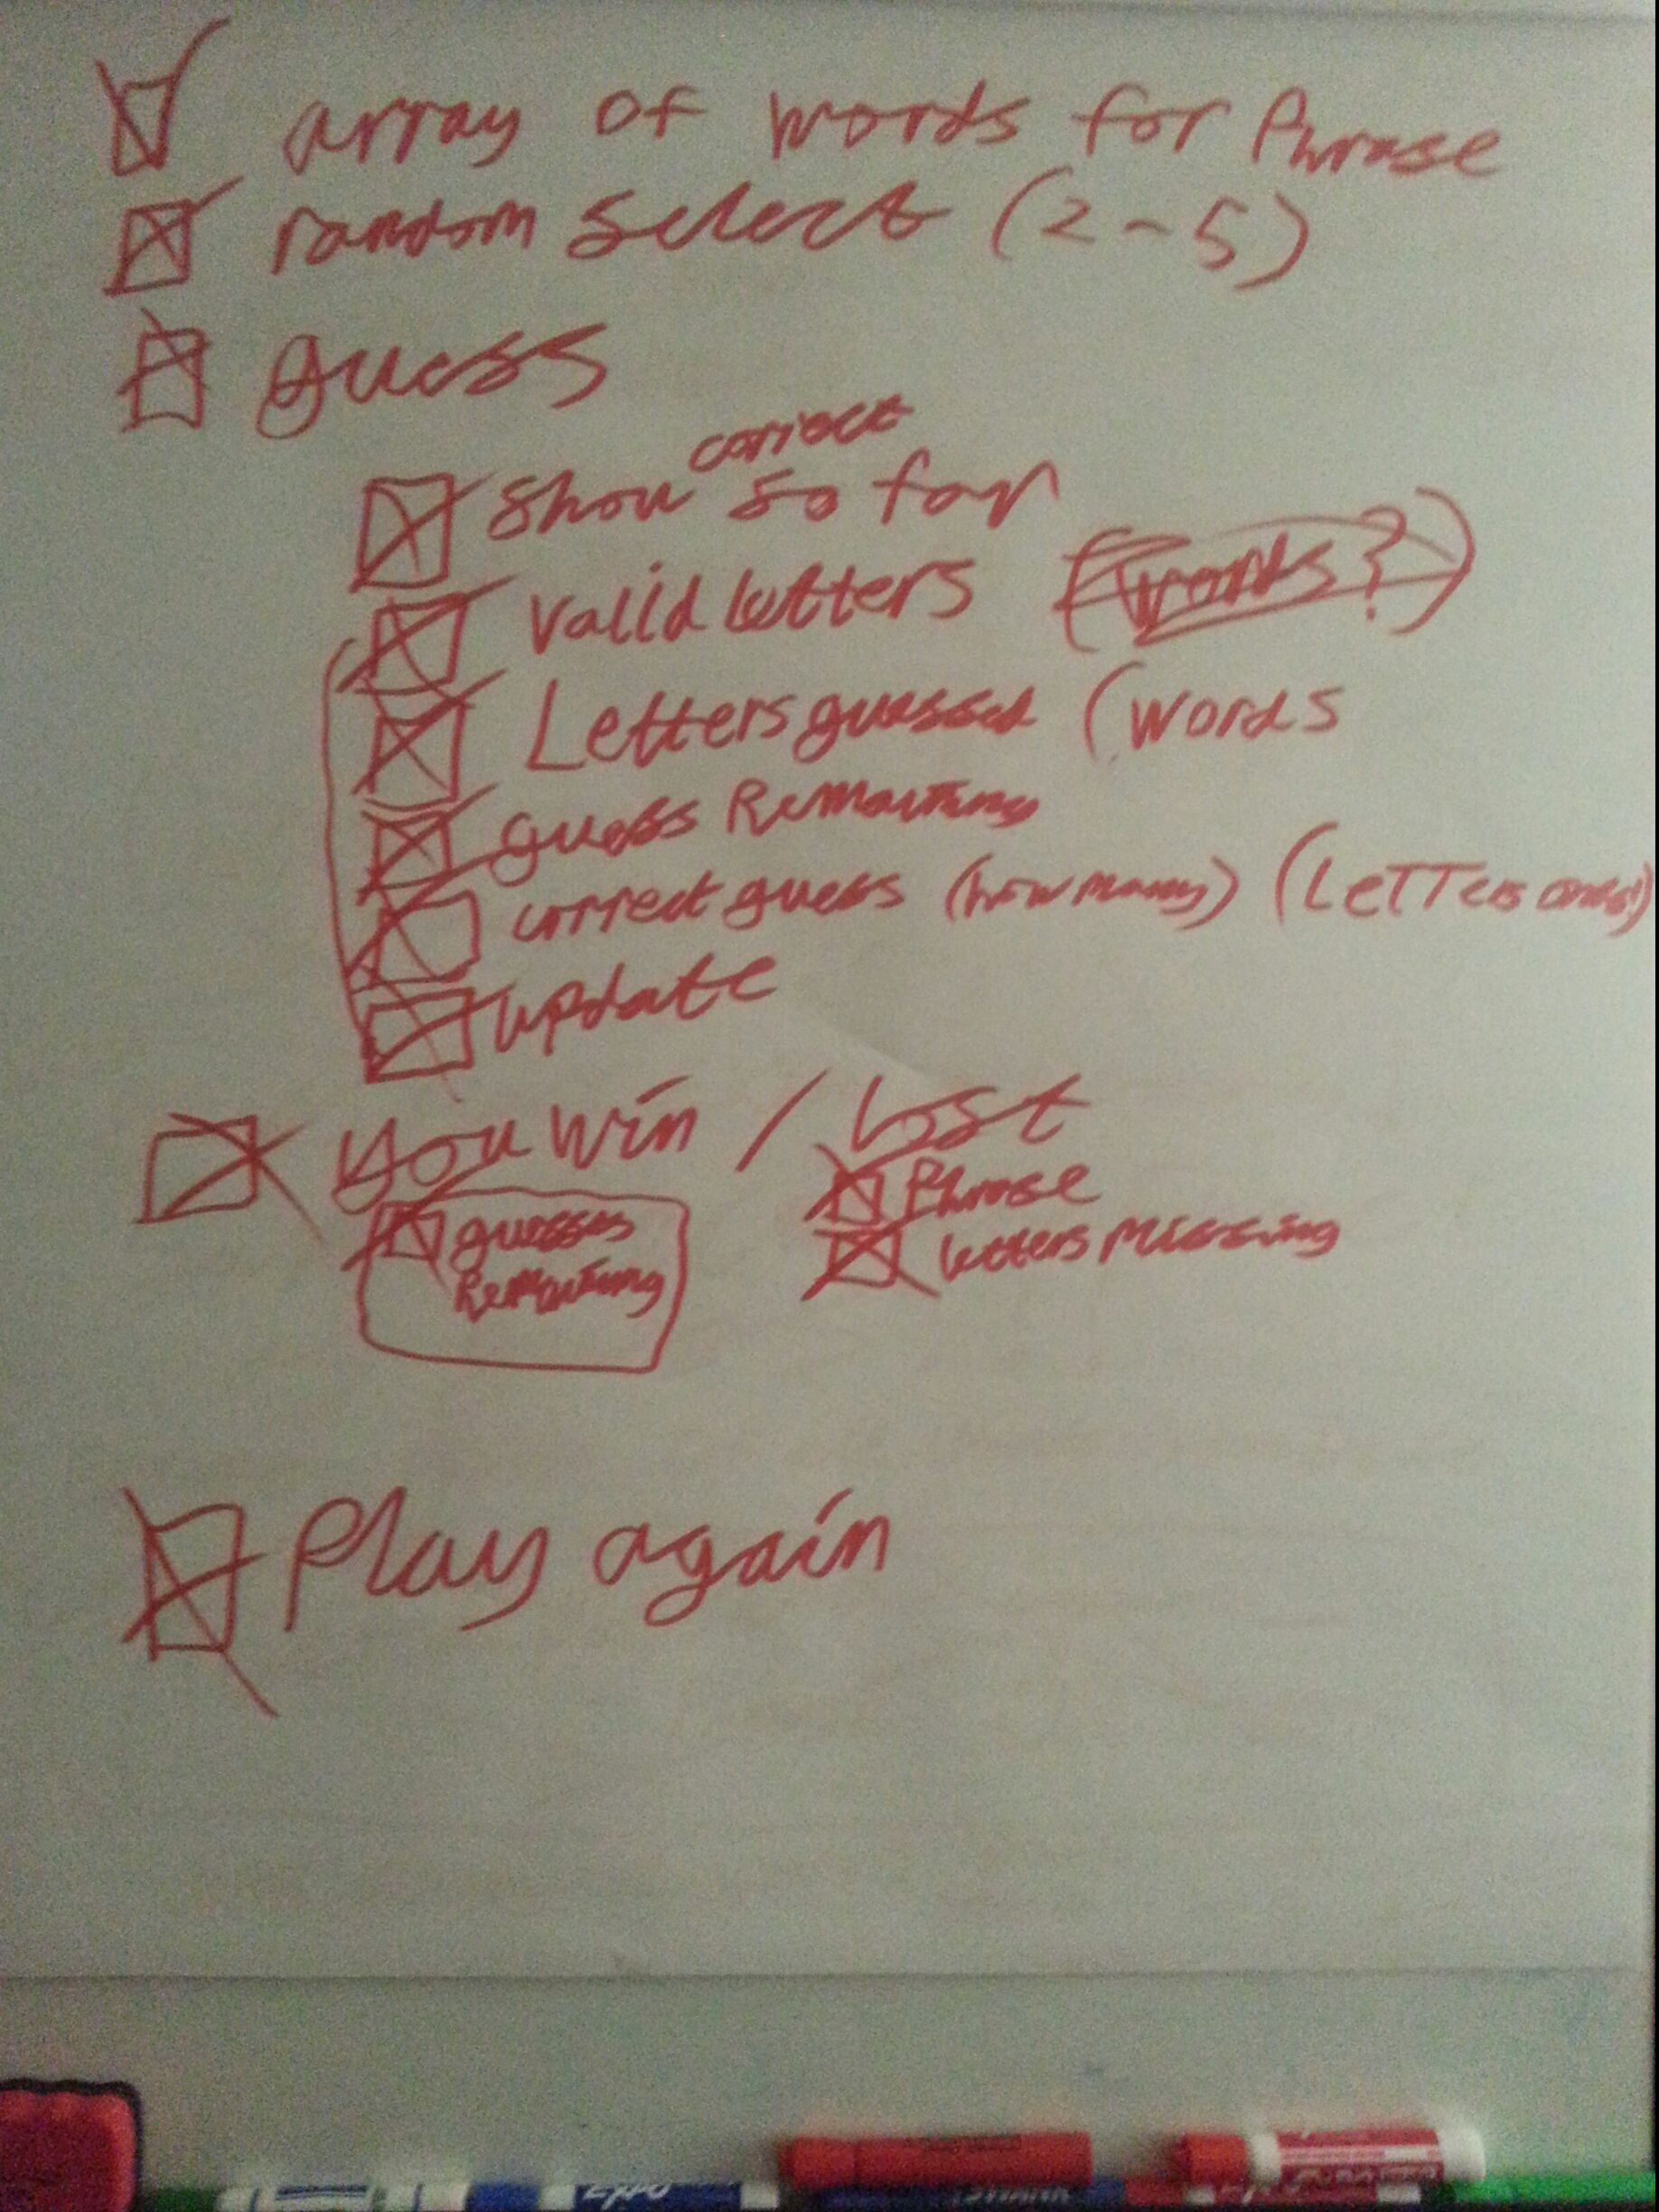 array of words for Phrase
random select (2-5)
guess
correct
show so far
valid letters (words?)
Letters guessed (words
guess Remaining
correct guess (how many) (Letters ones!)
update
you win / lost
guesses
Remaining
Phrase
letters missing
Play again
EXPO